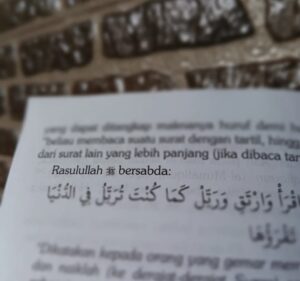 yang dapat ditangkap maknanya huruf demi h
"beliau membaca suatu surat dengan tartil, hingg
dari surat lain yang lebih panjang (jika dibaca tar
Rasulullah ﷺ bersabda:
اقْرَأْ وَارْتَقِ وَرَتِّلْ كَمَا كُنْتَ تُرَتِّلُ فِي الدُّنْيَا
تَقْرَؤُهَا
"Dikatakan kepada orang yang gemar mem
dan naiklah